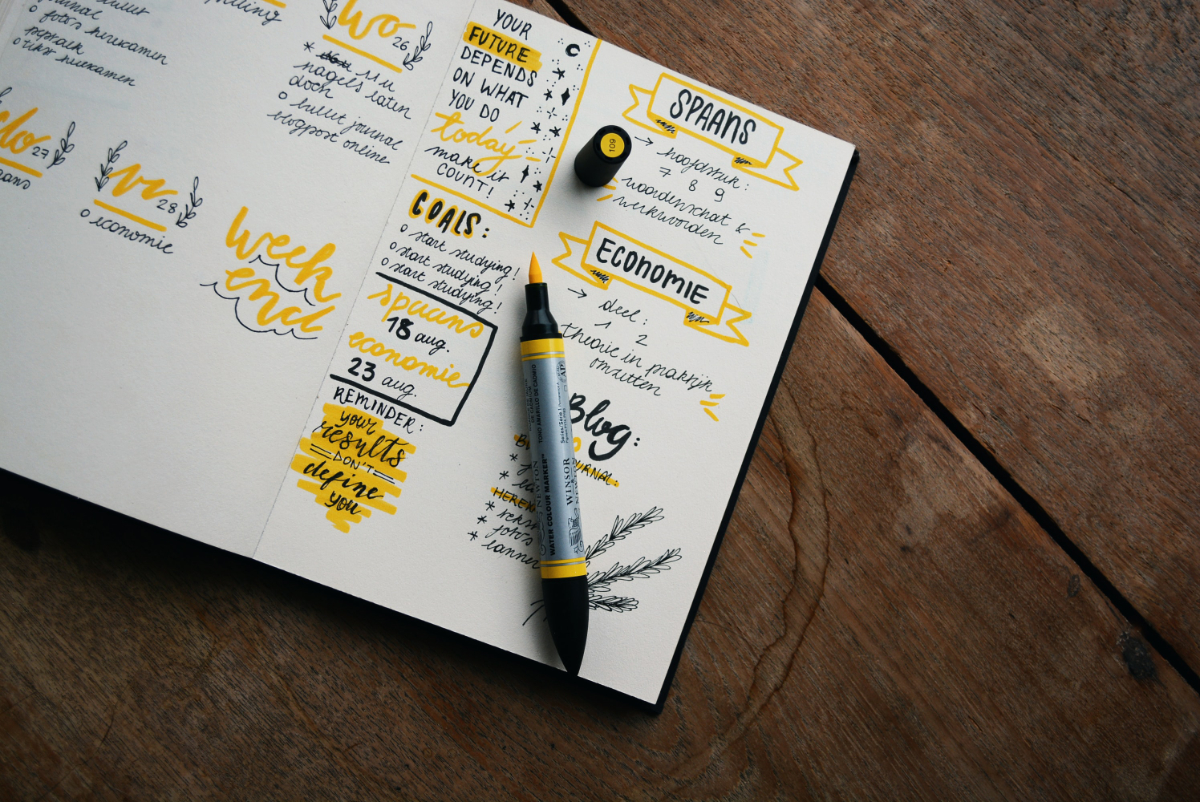 o foto's herexamen
peptalk
o tiks herexamen
wo 26
* 11 u
nagels laten
doen
o bullet journal
blogpost online
do 27
vr 28
o economie
week
end
YOUR
FUTURE
DEPENDS
ON WHAT
YOU DO
today
make it
COUNT!
GOALS:
o start studying!
o start studying!
o start studying!
spaans
18 aug.
economie
23 aug.
REMINDER:
your
results
DON'T
define
you
SPAANS
→ hoofdstuk:
7 8 9
woordenschat &
werkwoorden
ECONOMIE
→ deel:
1 2
theorie in praktijk
omzetten
Blog:
JOURNAL:
109
WATER COLOUR MARKER
WINSOR
NEWTON